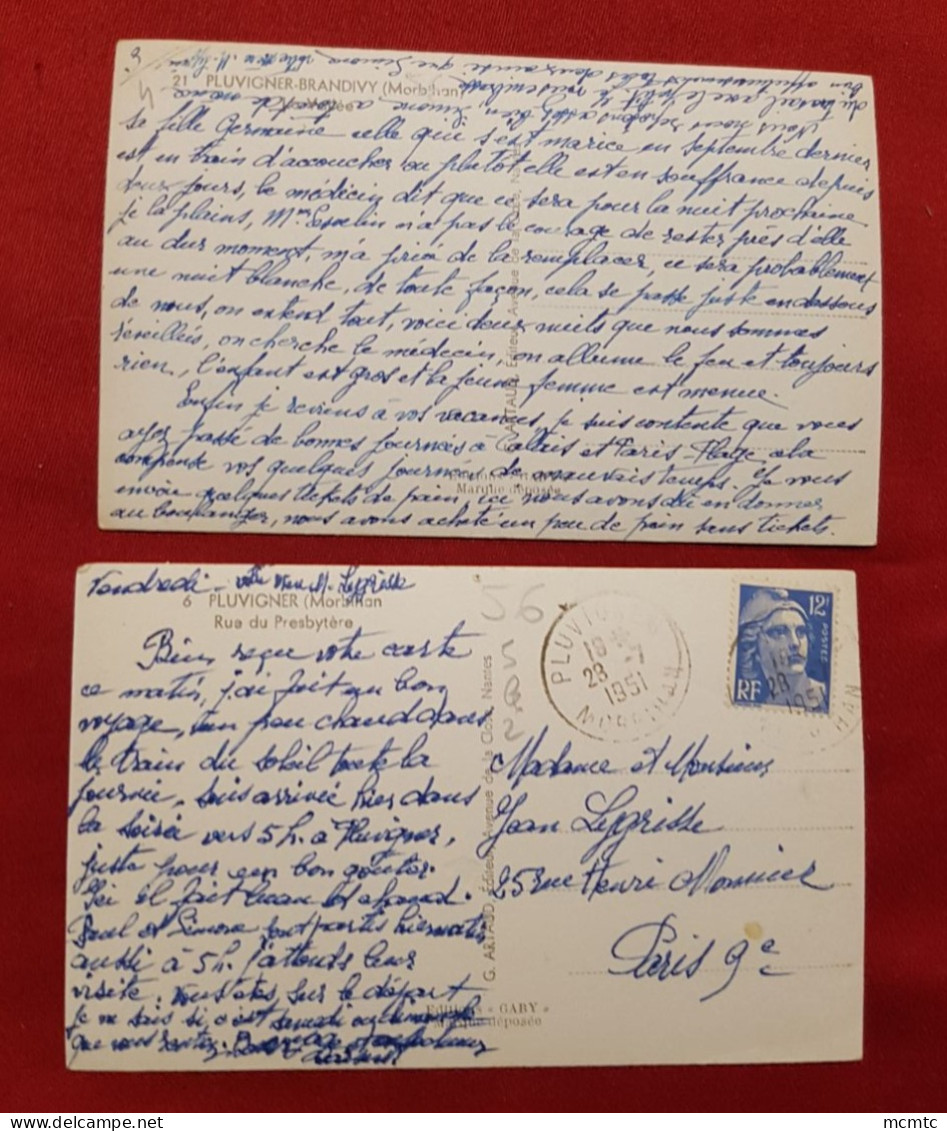 21 PLUVIGNER-BRANDIVY (Morbihan)
Nous nous reposons assez bien, Simone
se fille Germaine celle qui s'est mariée en septembre dernier
est en train d'accoucher ou plutôt elle est en souffrance depuis
deux jours, le médecin dit que ce sera pour la nuit prochaine
je la plains, Mme n'a pas le courage de rester près d'elle
au dur moment, m'a prié de la remplacer, ce sera probablement
une nuit blanche, de toute façon, cela se passe juste en dessous
de nous, on entend tout, voici deux nuits que nous sommes
réveillés, on cherche le médecin, on allume le feu et toujours
rien, l'enfant est gros et la jeune femme est menue.
Enfin je reviens à vos vacances, je suis contente que vous
ayez passé de bonnes journées à Calais et Paris Plage, cela
compense vos quelques journées de mauvais temps. Je vous
envoie quelques tickets de pain, ici nous avons dû en donner
au boulanger, nous avons acheté un peu de pain sans tickets.
Marque déposée
Vendredi - votre Mme M. Legrisse
6 PLUVIGNER (Morbihan
Rue du Presbytère
Bien reçu votre carte
ce matin, j'ai fait un bon
voyage, un peu chaud dans
le train du soleil toute la
journée, suis arrivée hier dans
la soirée vers 5 h. à Pluvigner,
juste pour un bon goûter.
Ici il fait beau et chaud.
Paul et Simone sont partis hier matin
aussi à 5 h. J'attends leur
visite. Vous êtes sur le départ
je ne sais si c'est samedi ou dimanche
que vous partez.
G. ARTAUD, Éditeur, Avenue de la Close, Nantes
Editions « GABY »
Marque déposée
56
PLUVIGNER
18
28 -7
1951
MORBIHAN
12F
POSTES
RF
Madame et Monsieur
Jean Legrisse
25 rue Henri Monnier
Paris 9e
mcmtc